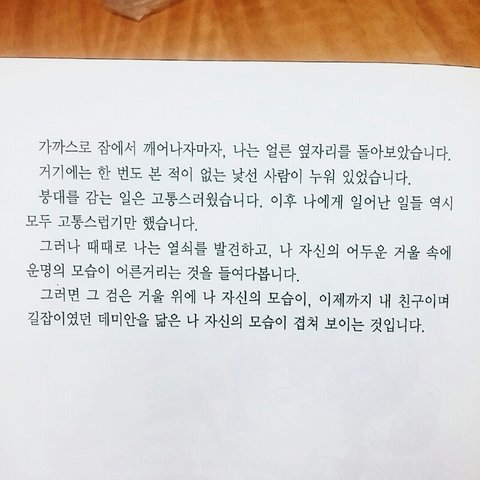 가까스로 잠에서 깨어나자마자, 나는 얼른 옆자리를 돌아보았습니다.
거기에는 한 번도 본 적이 없는 낯선 사람이 누워 있었습니다.
붕대를 감는 일은 고통스러웠습니다. 이후 나에게 일어난 일들 역시
모두 고통스럽기만 했습니다.
그러나 때때로 나는 열쇠를 발견하고, 나 자신의 어두운 거울 속에
운명의 모습이 어른거리는 것을 들여다봅니다.
그러면 그 검은 거울 위에 나 자신의 모습이, 이제까지 내 친구이며
길잡이였던 데미안을 닮은 나 자신의 모습이 겹쳐 보이는 것입니다.